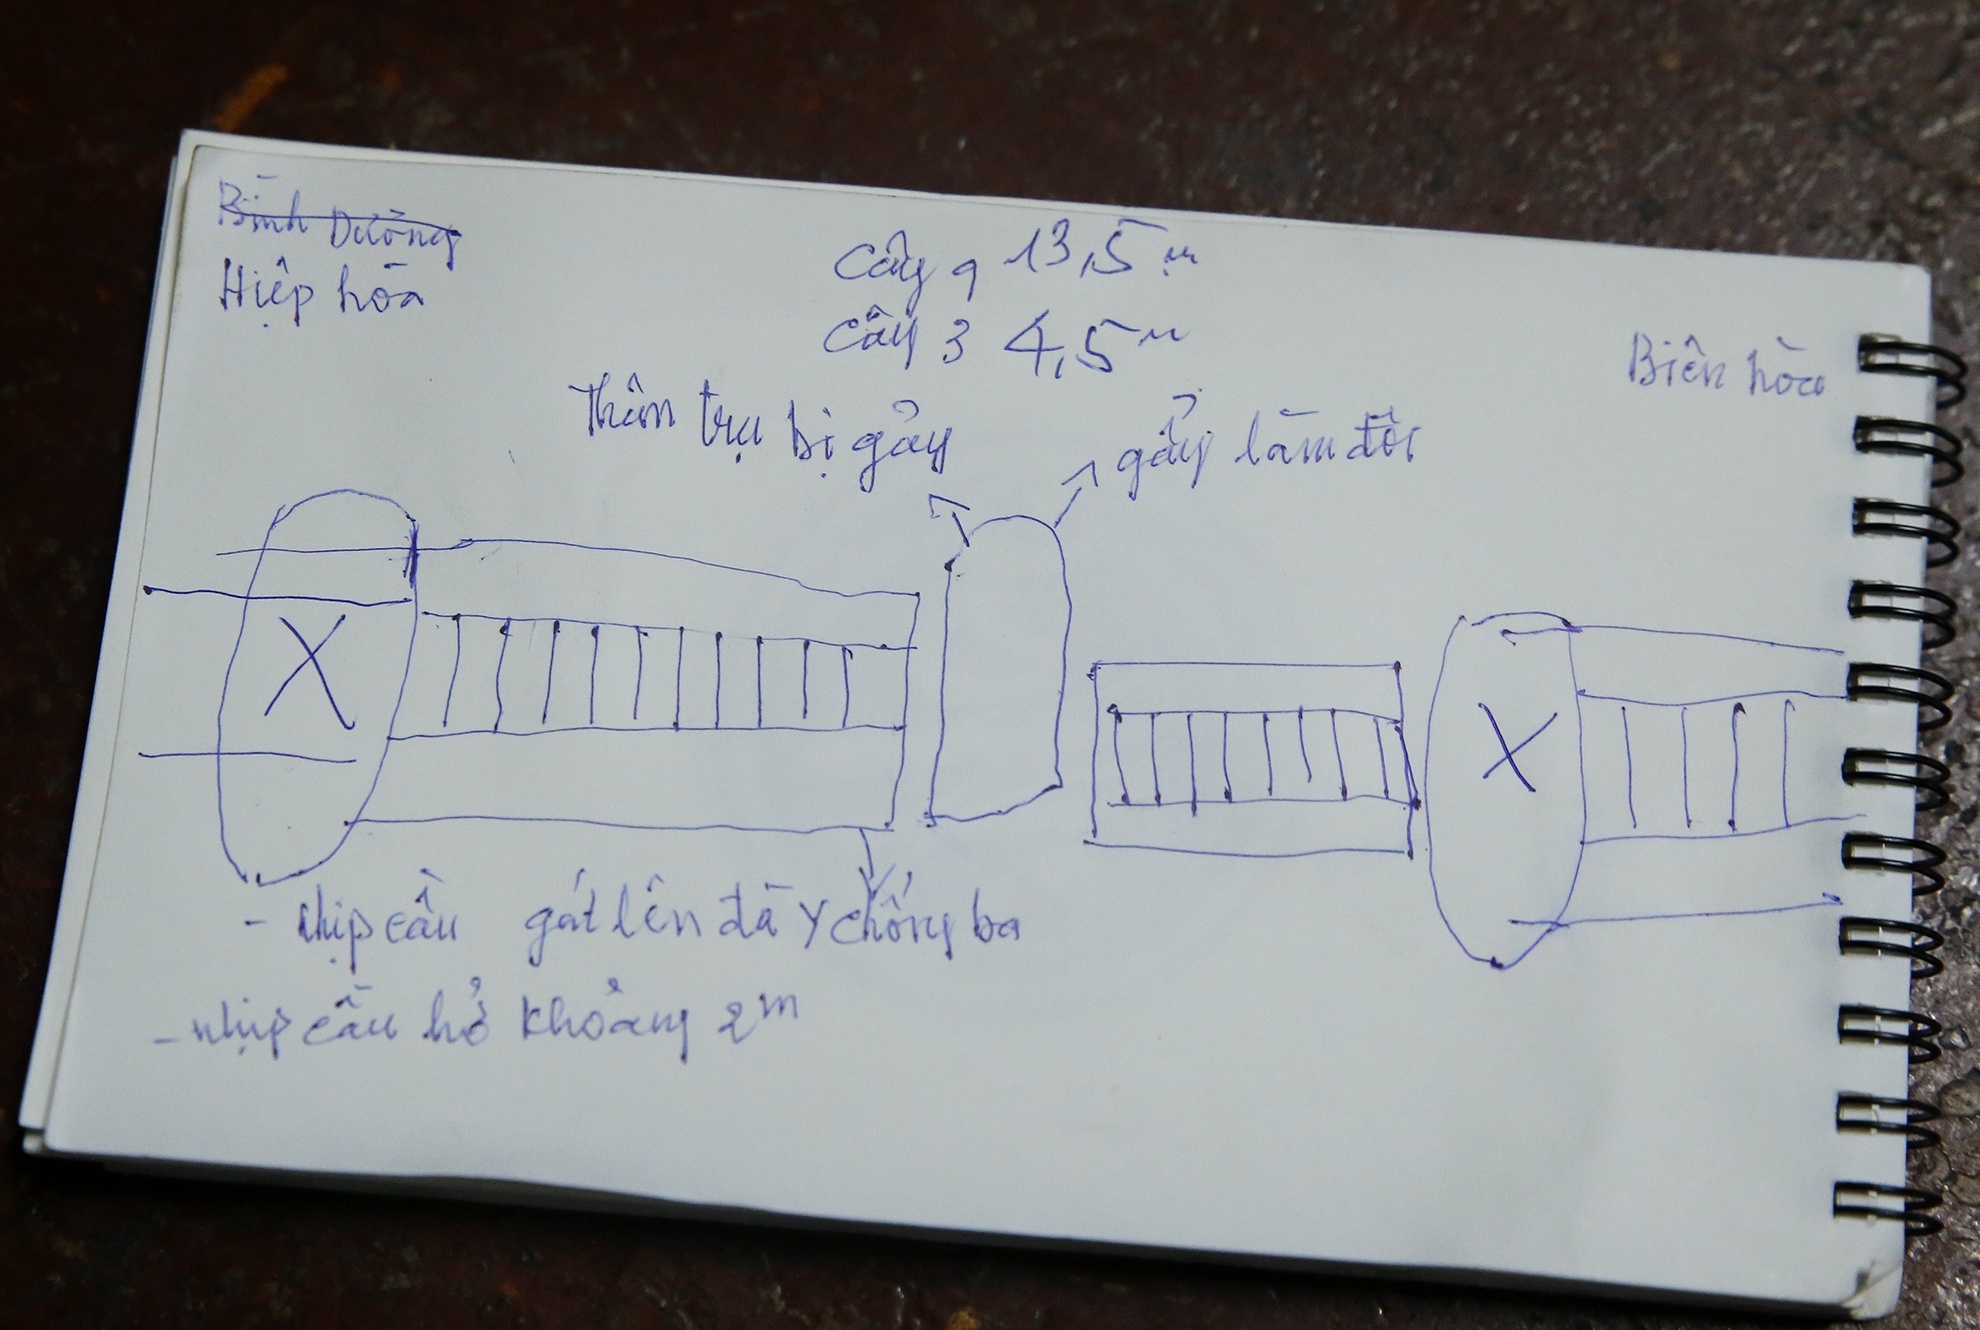 Bình Dường
Hiệp hòa
Cây 9 13,5 m
Cây 3 4,5 m
Biên hòa
Thân trụ bị gảy
gẩy làm đôi
- nhịp cầu gát lên đà Y chống ba
- nhịp cầu hở khoảng 2m